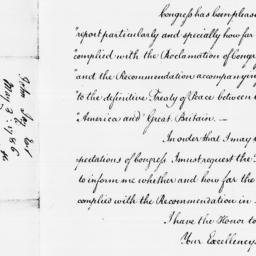 Congress has been please
"report particularly and specially how far
"complied with the Proclamation of Congr
"and the Recommendation accompanying
"to the definitive Treaty of Peace between
"America and Great Britain. —
In order that I may
pectations of Congress I must request the
to inform me whether and how far the
complied with the Recommendation in
I have the Honor to
Your Excellency
John Jay Esqr
May 3d. 1786